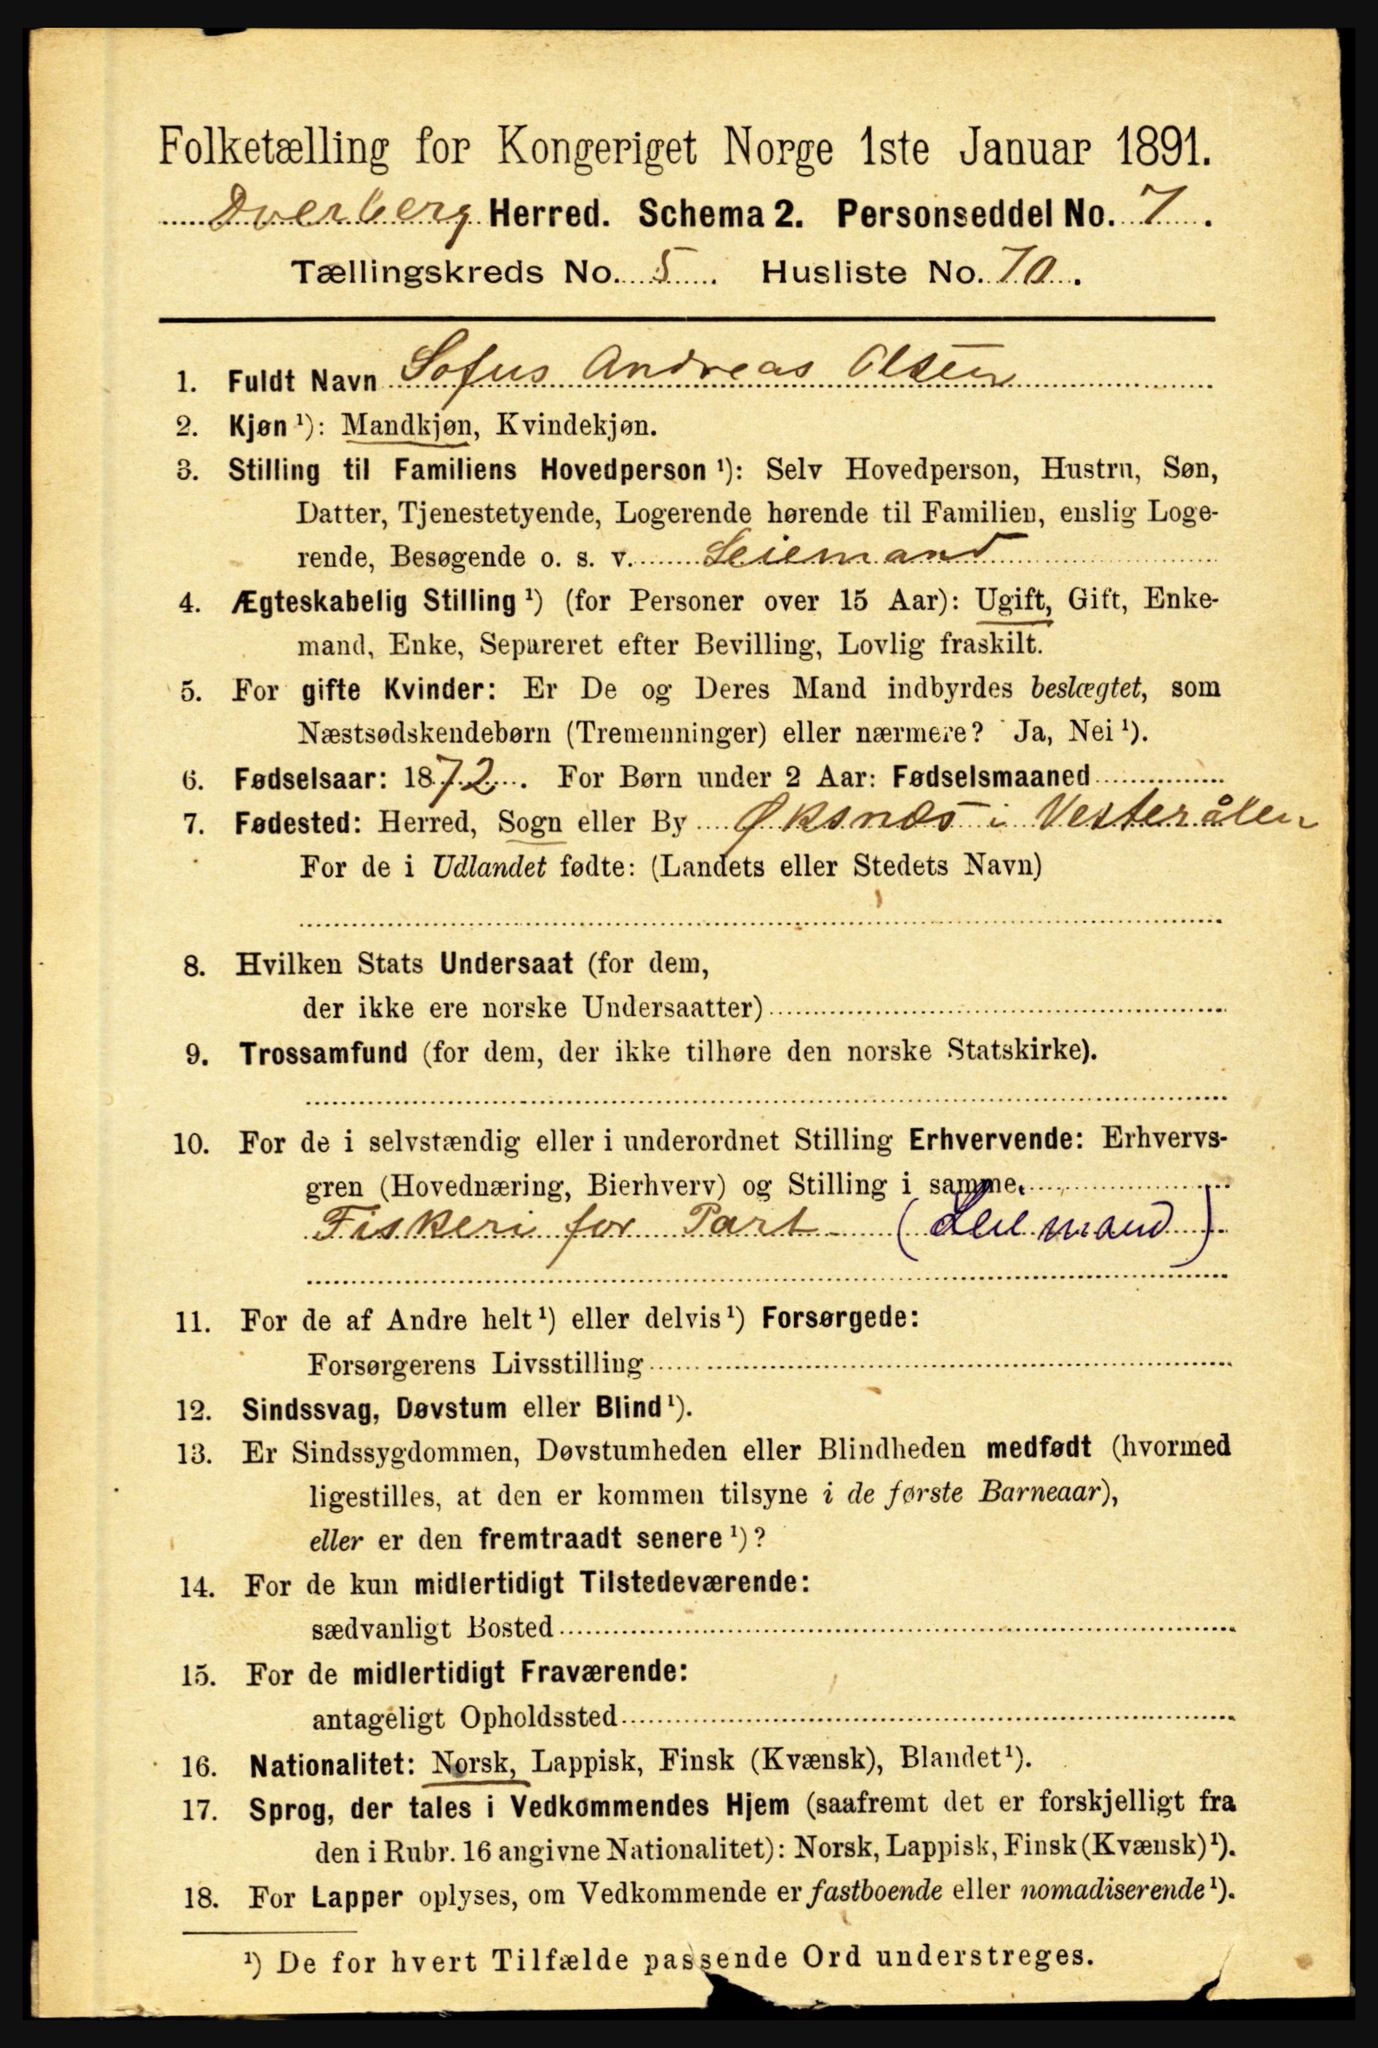 Folketælling for Kongeriget Norge 1ste Januar 1891.
Dverberg Herred. Schema 2. Personseddel No. 7.
Tællingskreds No. 5. Husliste No. 70.
1. Fuldt Navn Sofus Andreas Olsen
2. Kjøn ¹): Mandkjøn, Kvindekjøn.
3. Stilling til Familiens Hovedperson ¹): Selv Hovedperson, Hustru, Søn,
Datter, Tjenestetyende, Logerende hørende til Familien, enslig Loge-
rende, Besøgende o. s. v. Leiemand
4. Ægteskabelig Stilling ¹) (for Personer over 15 Aar): Ugift, Gift, Enke-
mand, Enke, Separeret efter Bevilling, Lovlig fraskilt.
5. For gifte Kvinder: Er De og Deres Mand indbyrdes beslægtet, som
Næstsødskendebørn (Tremenninger) eller nærmere? Ja, Nei ¹).
6. Fødselsaar: 1872. For Børn under 2 Aar: Fødselsmaaned
7. Fødested: Herred, Sogn eller By Øksnæs i Vesterålen
For de i Udlandet fødte: (Landets eller Stedets Navn)
8. Hvilken Stats Undersaat (for dem,
der ikke ere norske Undersaatter)
9. Trossamfund (for dem, der ikke tilhøre den norske Statskirke).
10. For de i selvstændig eller i underordnet Stilling Erhvervende: Erhvervs-
gren (Hovednæring, Bierhverv) og Stilling i samme.
Fiskeri for Part (Leiemand)
11. For de af Andre helt ¹) eller delvis ¹) Forsørgede:
Forsørgerens Livsstilling
12. Sindssvag, Døvstum eller Blind ¹).
13. Er Sindssygdommen, Døvstumheden eller Blindheden medfødt (hvormed
ligestilles, at den er kommen tilsyne i de første Barneaar),
eller er den fremtraadt senere ¹)?
14. For de kun midlertidigt Tilstedeværende:
sædvanligt Bosted
15. For de midlertidigt Fraværende:
antageligt Opholdssted
16. Nationalitet: Norsk, Lappisk, Finsk (Kvænsk), Blandet ¹).
17. Sprog, der tales i Vedkommendes Hjem (saafremt det er forskjelligt fra
den i Rubr. 16 angivne Nationalitet): Norsk, Lappisk, Finsk (Kvænsk) ¹).
18. For Lapper oplyses, om Vedkommende er fastboende eller nomadiserende ¹).
¹) De for hvert Tilfælde passende Ord understreges.